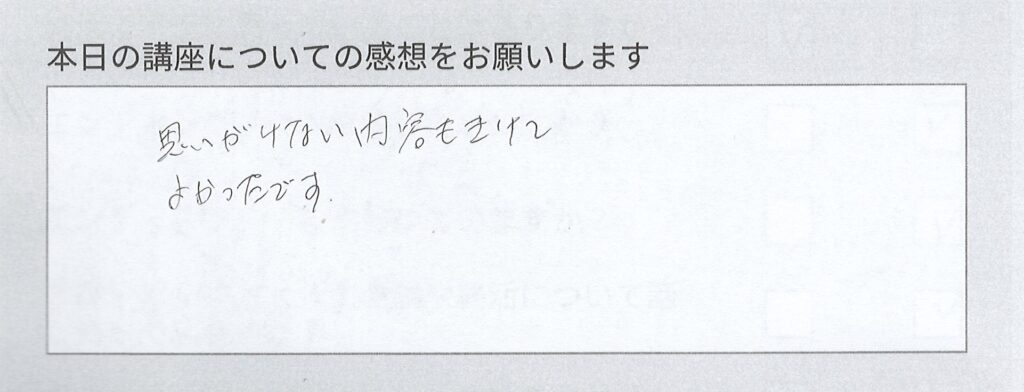 本日の講座についての感想をお願いします
思いがけない内容もきけて
よかったです.